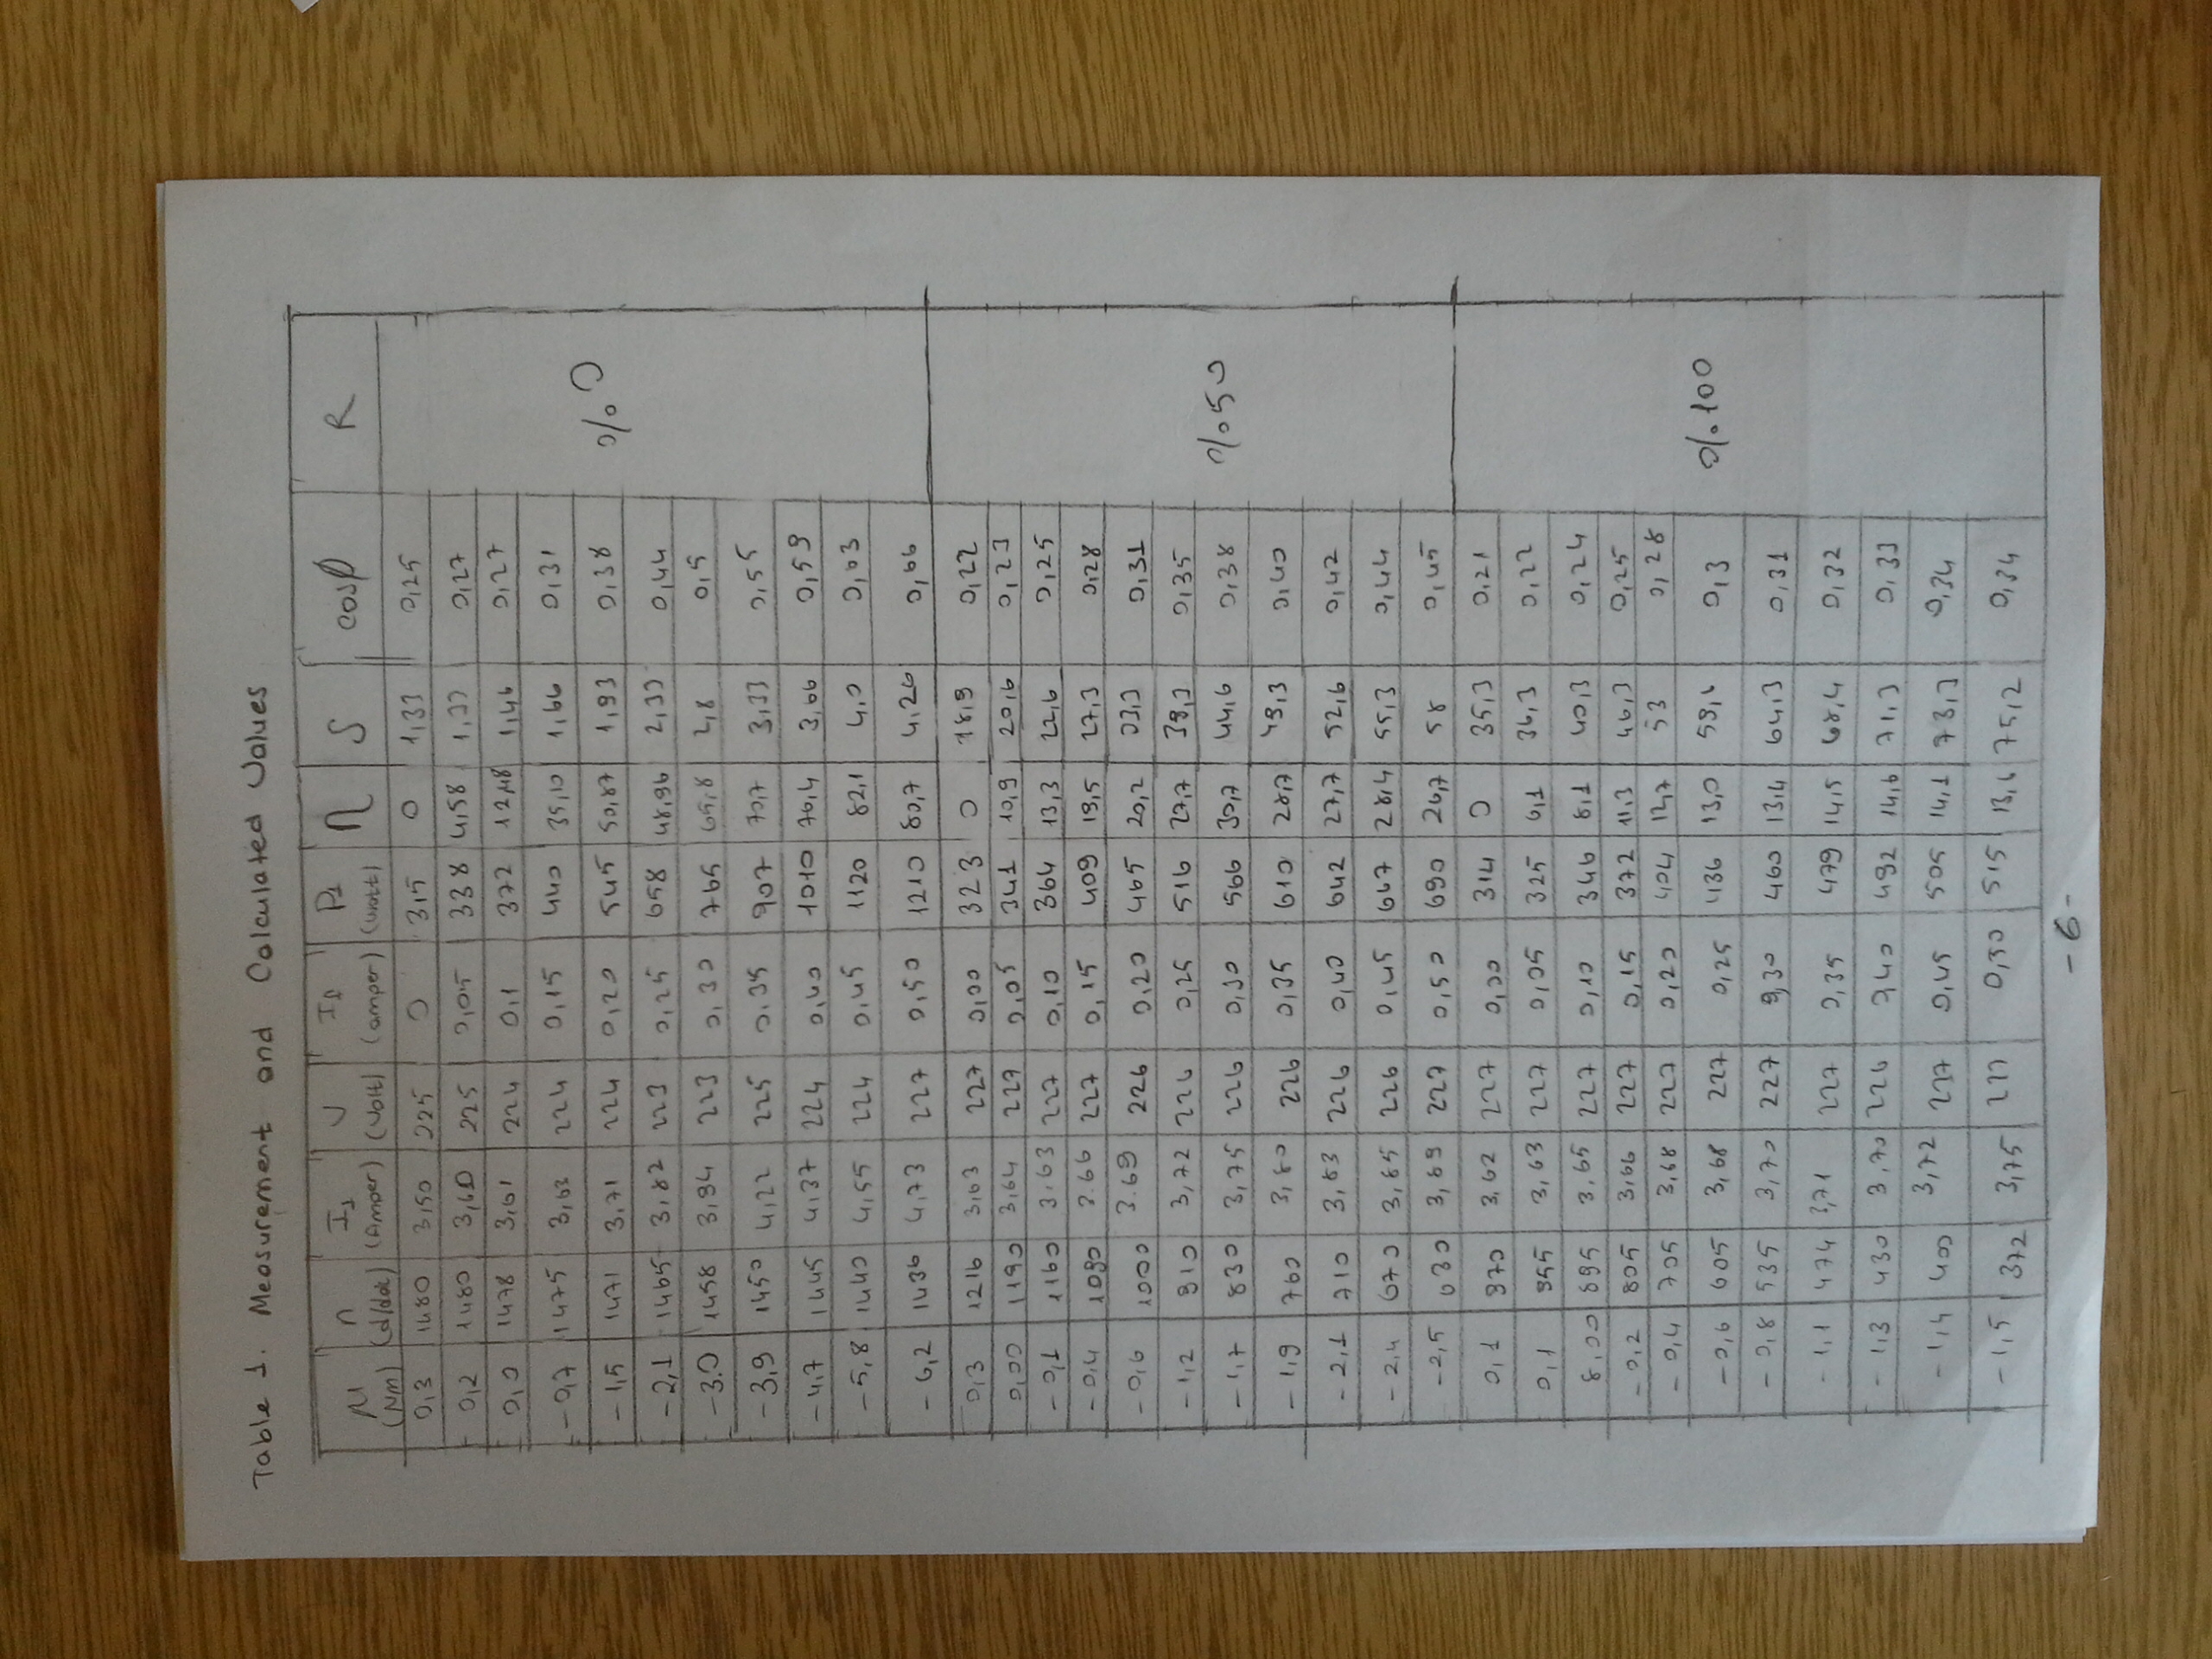 Table 1. Measurement and Calculated Values
M (Nm) n (d/dak) I1 (Amper) U (Volt) I2 (amper) P1 (watt) η S cosϕ R
0,3 1480 3,50 225 0 315 0 1,33 0,25
0,2 1480 3,60 225 0,05 338 4,58 1,33 0,27
0,0 1478 3,61 224 0,1 372 12,48 1,46 0,27
-0,7 1475 3,63 224 0,15 440 35,10 1,66 0,31
-1,5 1471 3,71 224 0,20 545 50,87 1,93 0,38
-2,1 1465 3,82 223 0,25 658 48,96 2,33 0,44
-3.0 1458 3,94 223 0,30 765 65,8 2,8 0,5
-3,9 1450 4,22 225 0,35 907 70,7 3,33 0,55
-4,7 1445 4,37 224 0,40 1010 76,4 3,66 0,59
-5,8 1440 4,55 224 0,45 1120 82,1 4,0 0,63
-6,2 1436 4,73 227 0,50 1210 80,7 4,26 0,66
%0
0,3 1216 3,63 227 0,00 323 0 18,9 0,22
0,00 1190 3,64 227 0,05 341 10,9 20,6 0,23
-0,1 1160 3,63 227 0,10 364 13,3 22,6 0,25
-0,4 1090 3.66 227 0,15 409 19,5 27,3 0,28
-0,6 1000 3.69 226 0,20 465 20,2 33,3 0,31
-1,2 910 3,72 226 0,25 516 27,7 39,3 0,35
-1,7 830 3,75 226 0,30 566 30,7 44,6 0,38
-1,9 760 3,80 226 0,35 610 28,7 49,3 0,40
-2,1 710 3,83 226 0,40 642 27,7 52,6 0,42
-2,4 670 3,85 226 0,45 667 28,4 55,3 0,44
-2,5 630 3,89 227 0,50 690 26,7 58 0,45
%50
0,1 970 3,62 227 0,00 314 0 35,3 0,21
0,1 955 3,63 227 0,05 325 6,1 36,3 0,22
0,00 895 3,65 227 0,10 346 8,1 40,3 0,24
-0,2 805 3,66 227 0,15 372 11,3 46,3 0,25
-0,4 705 3,68 227 0,20 404 12,7 53 0,28
-0,6 605 3,68 227 0,25 436 13,0 59,6 0,3
-0,8 535 3,70 227 0,30 460 13,4 64,3 0,31
-1,1 474 3,71 227 0,35 479 14,5 68,4 0,32
-1,3 430 3,70 226 0,40 492 14,6 71,3 0,33
-1,4 400 3,72 227 0,45 505 14,1 73,3 0,34
-1,5 372 3,75 227 0,50 515 13,6 75,2 0,34
%100
-6-